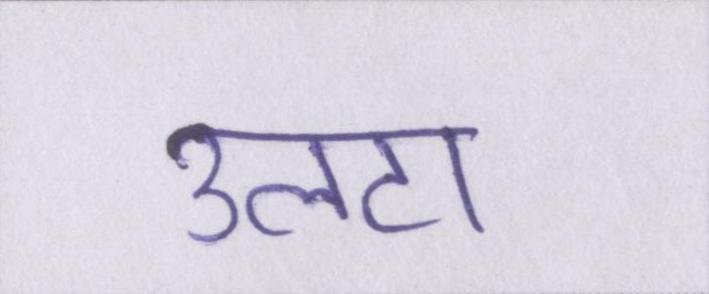 उलटा